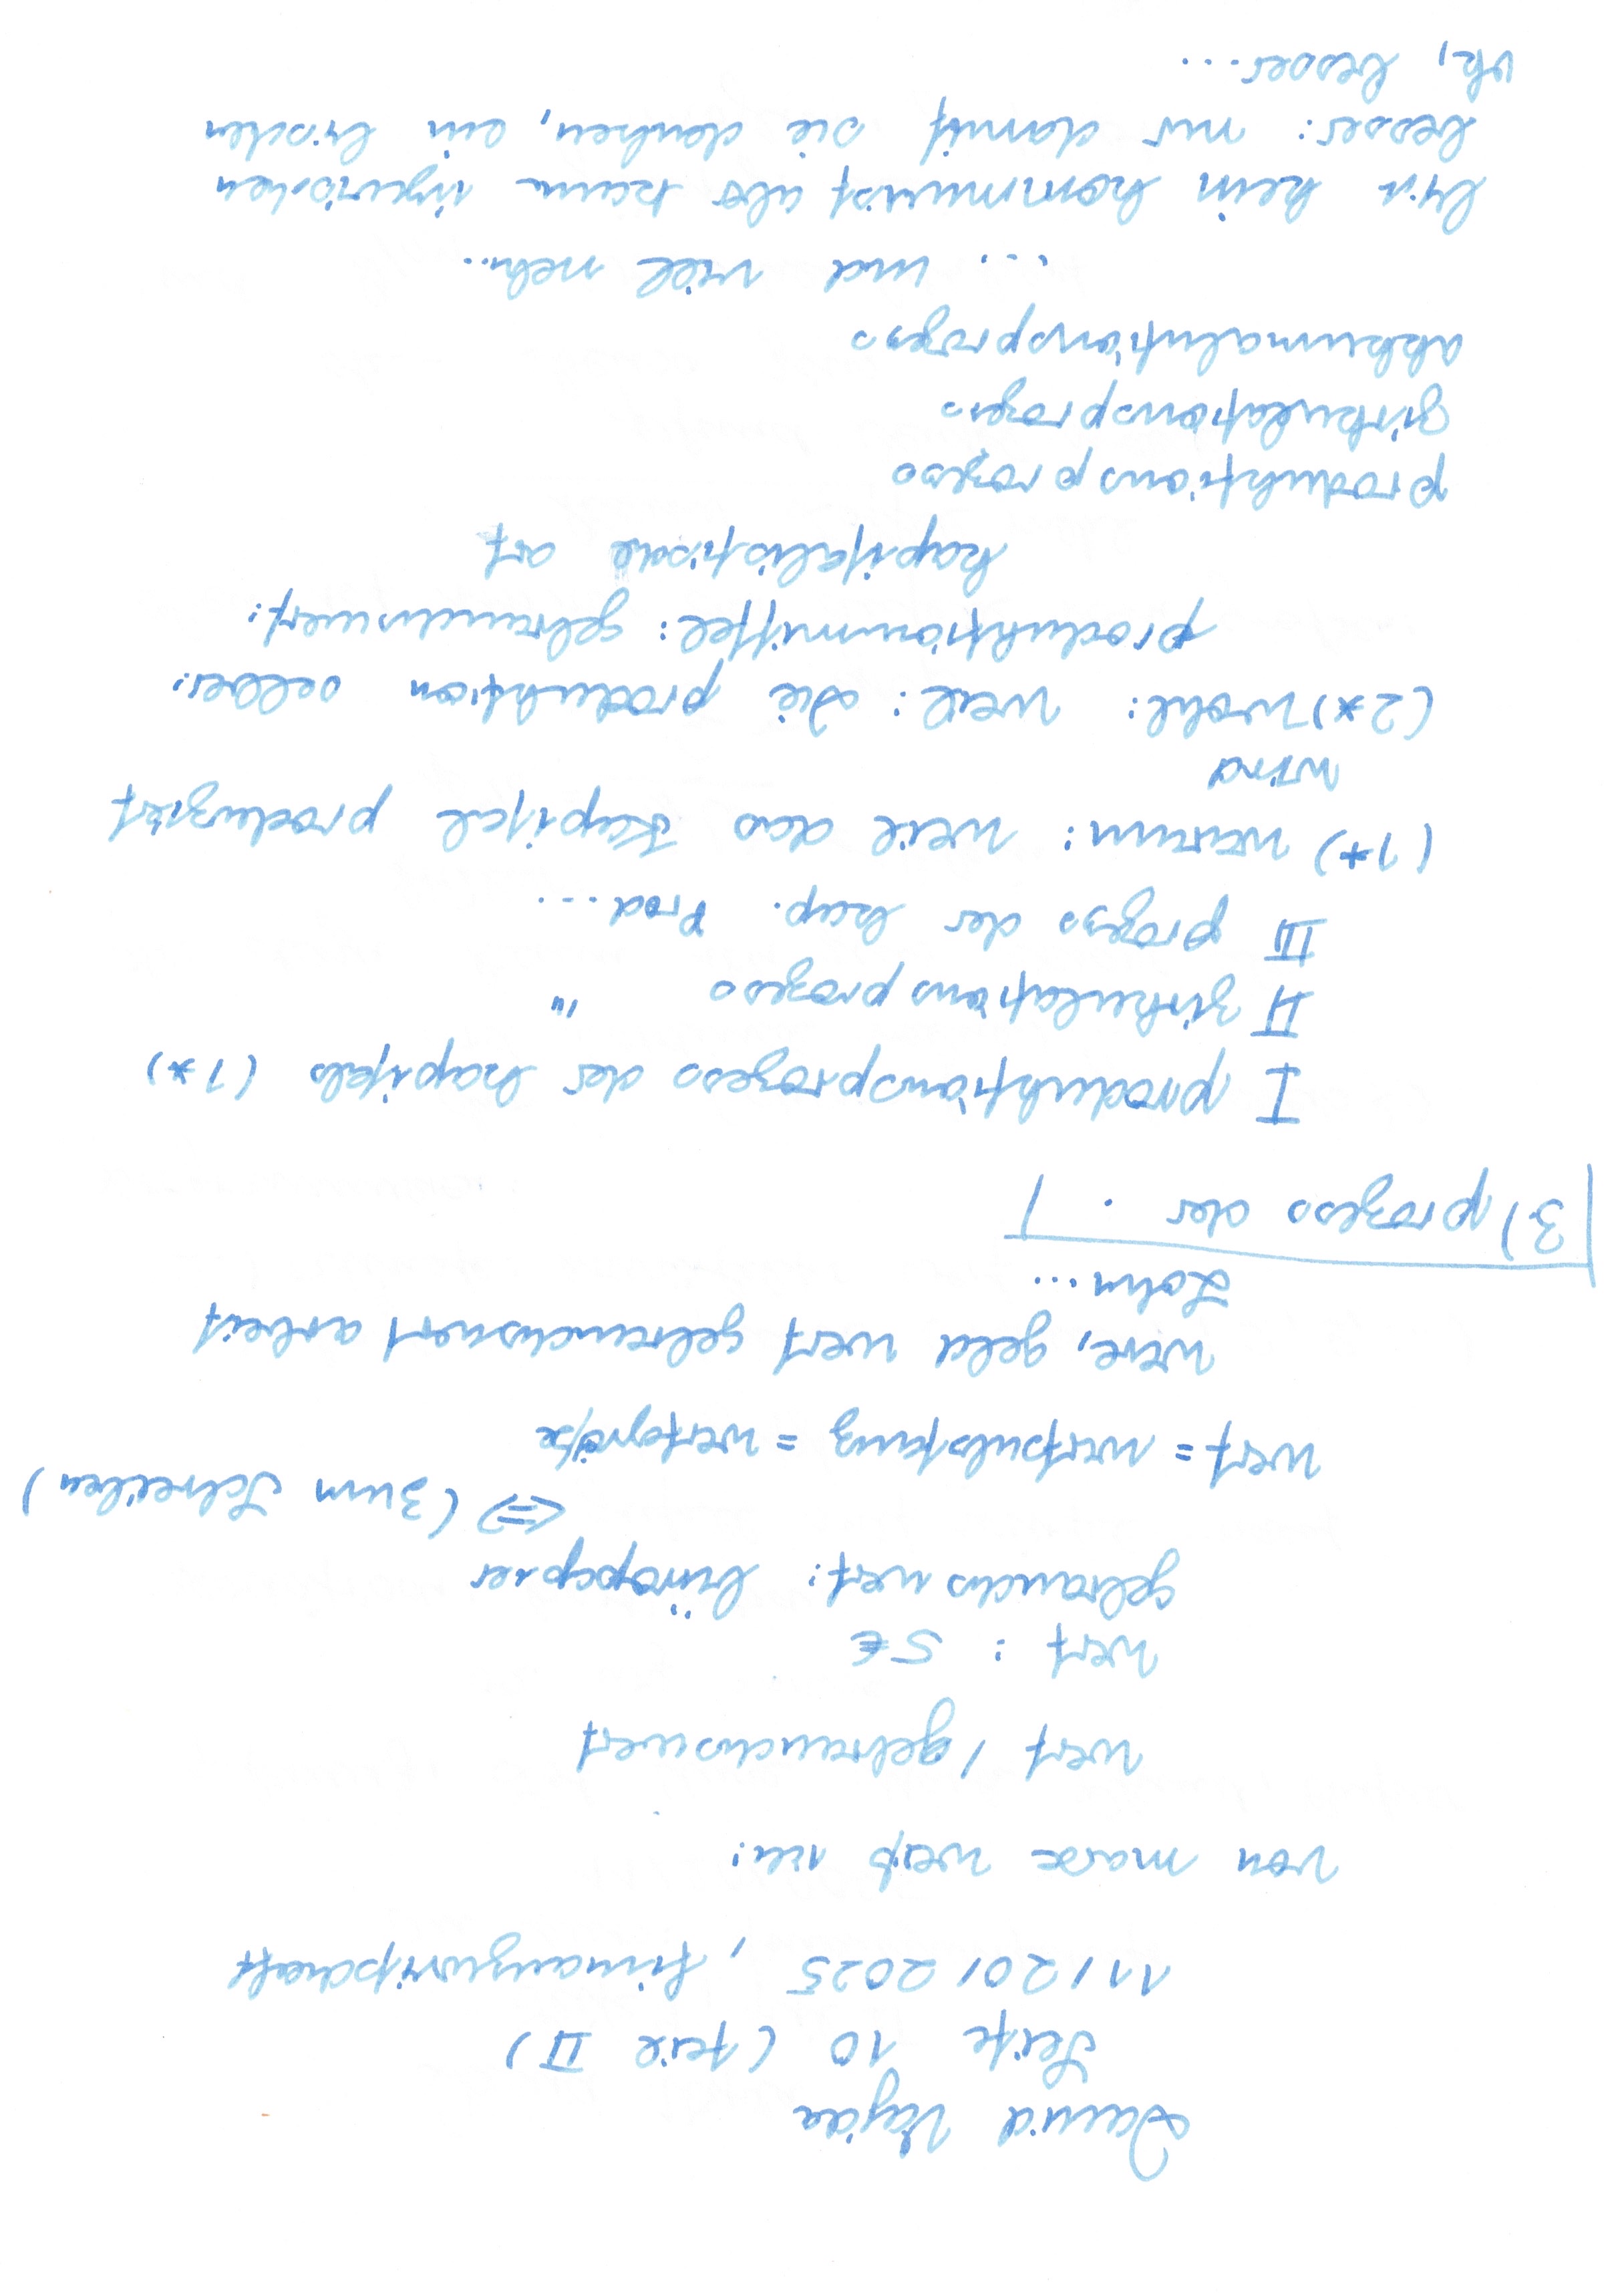 David Vajda
Seite 10 (teil II)
11/20/2025, finanzwirtschaft
von marx weiß ich:
wert / gebrauchswert
wert : 5 €
gebrauchswert: büropapier
<=> (zum Schreiben)
wert = wertsubstanz = wertgröße
ware, geld wert gebrauchswert arbeit
Lohn...
3) prozess der .
I produktionsprozess des kapitals (1*)
II zirkulationsprozess "
III prozess der kap. Prod...
(1*) warum: weil das Kapital produziert
wird
(2*) wohl: weil: die produktion selber:
produktionmittel: gebrauchswert:
kapitalistische art
produktionsprozess
zirkulationsprozess
akkumalutionsprozess
... und viel mehr...
bin kein kommunist also kaum inzwischen
besser: nur damit sie denken, ein bischen
ok, besser...